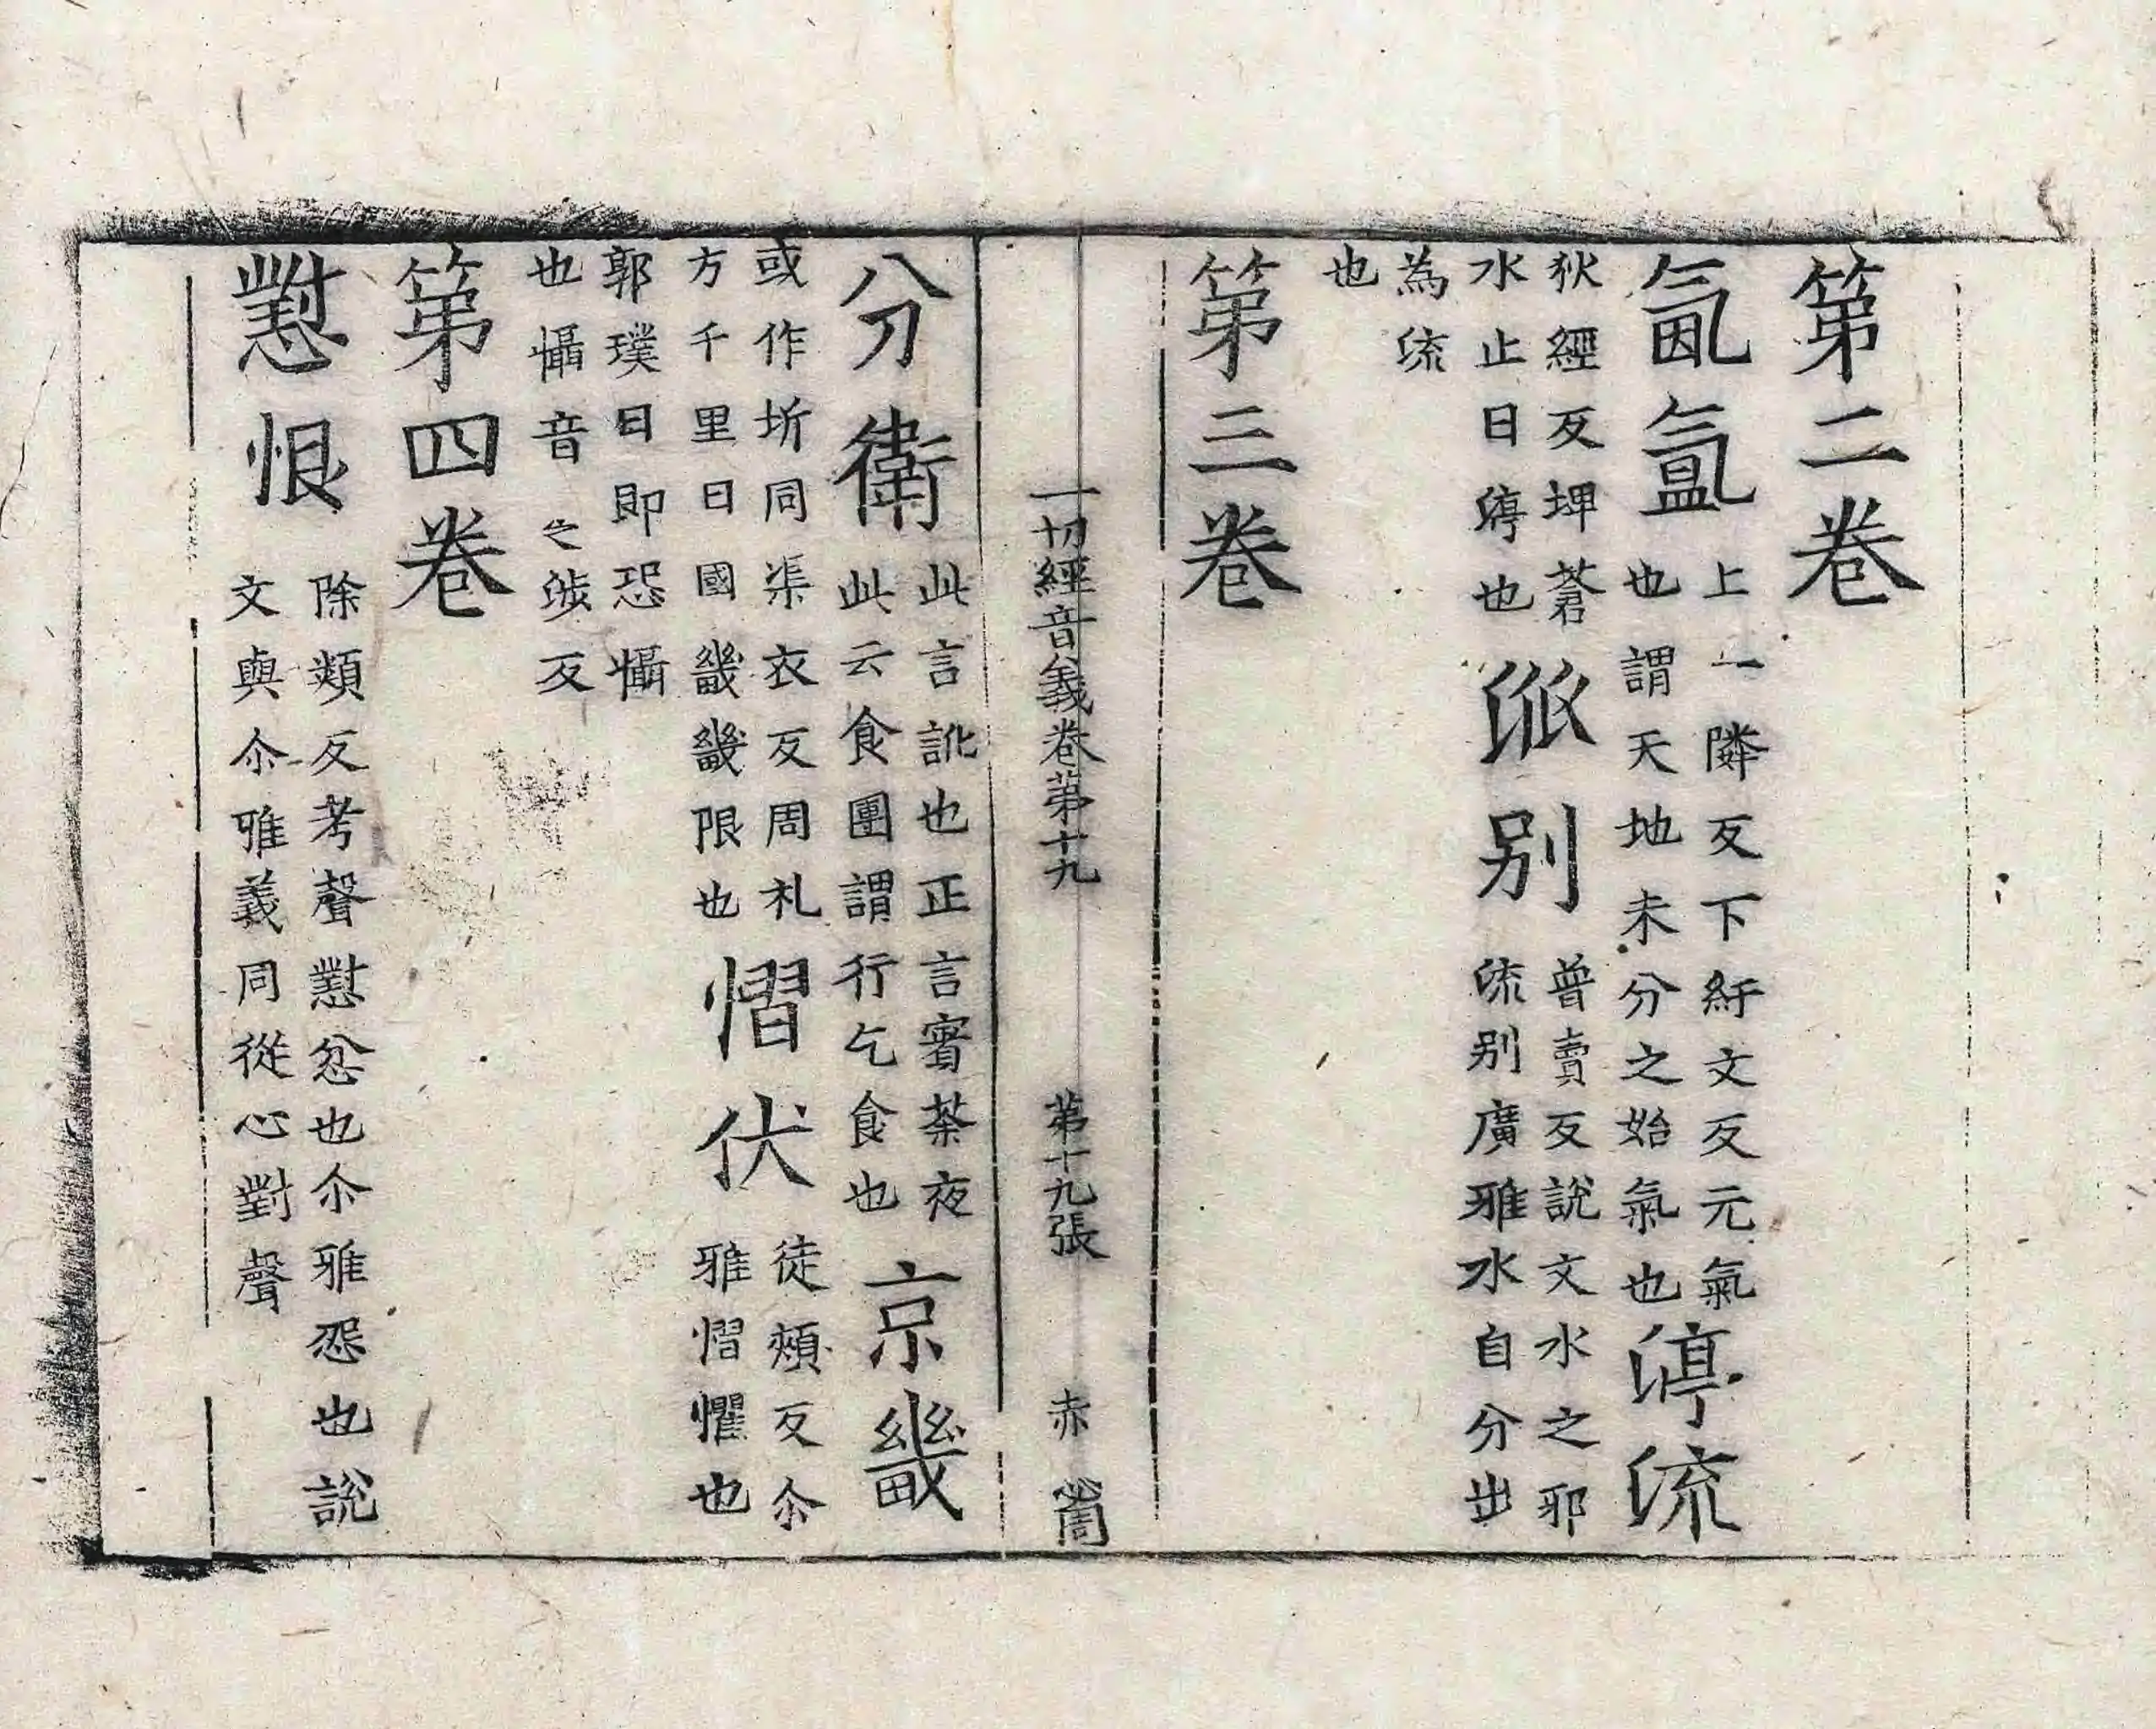 第二卷
氤氳上一隣反下紆文反元氣也謂天地未分之始氣也渟流
狄經反埤蒼水止曰渟也派別普賣反說文水之邪流別廣雅水自分出
為流也
第三卷
一切經音義卷第十九 第十九張 赤
分衛此言訛也正言賓荼夜此云食團謂行乞食也京畿
或作圻同渠衣反周礼方千里曰國畿畿限也慴伏徒頰反尒雅慴懼也
郭璞曰即恐懾也懾音之涉反
第四卷
懟恨除類反考聲懟忿也尒雅怨也說文與尒雅義同從心對聲